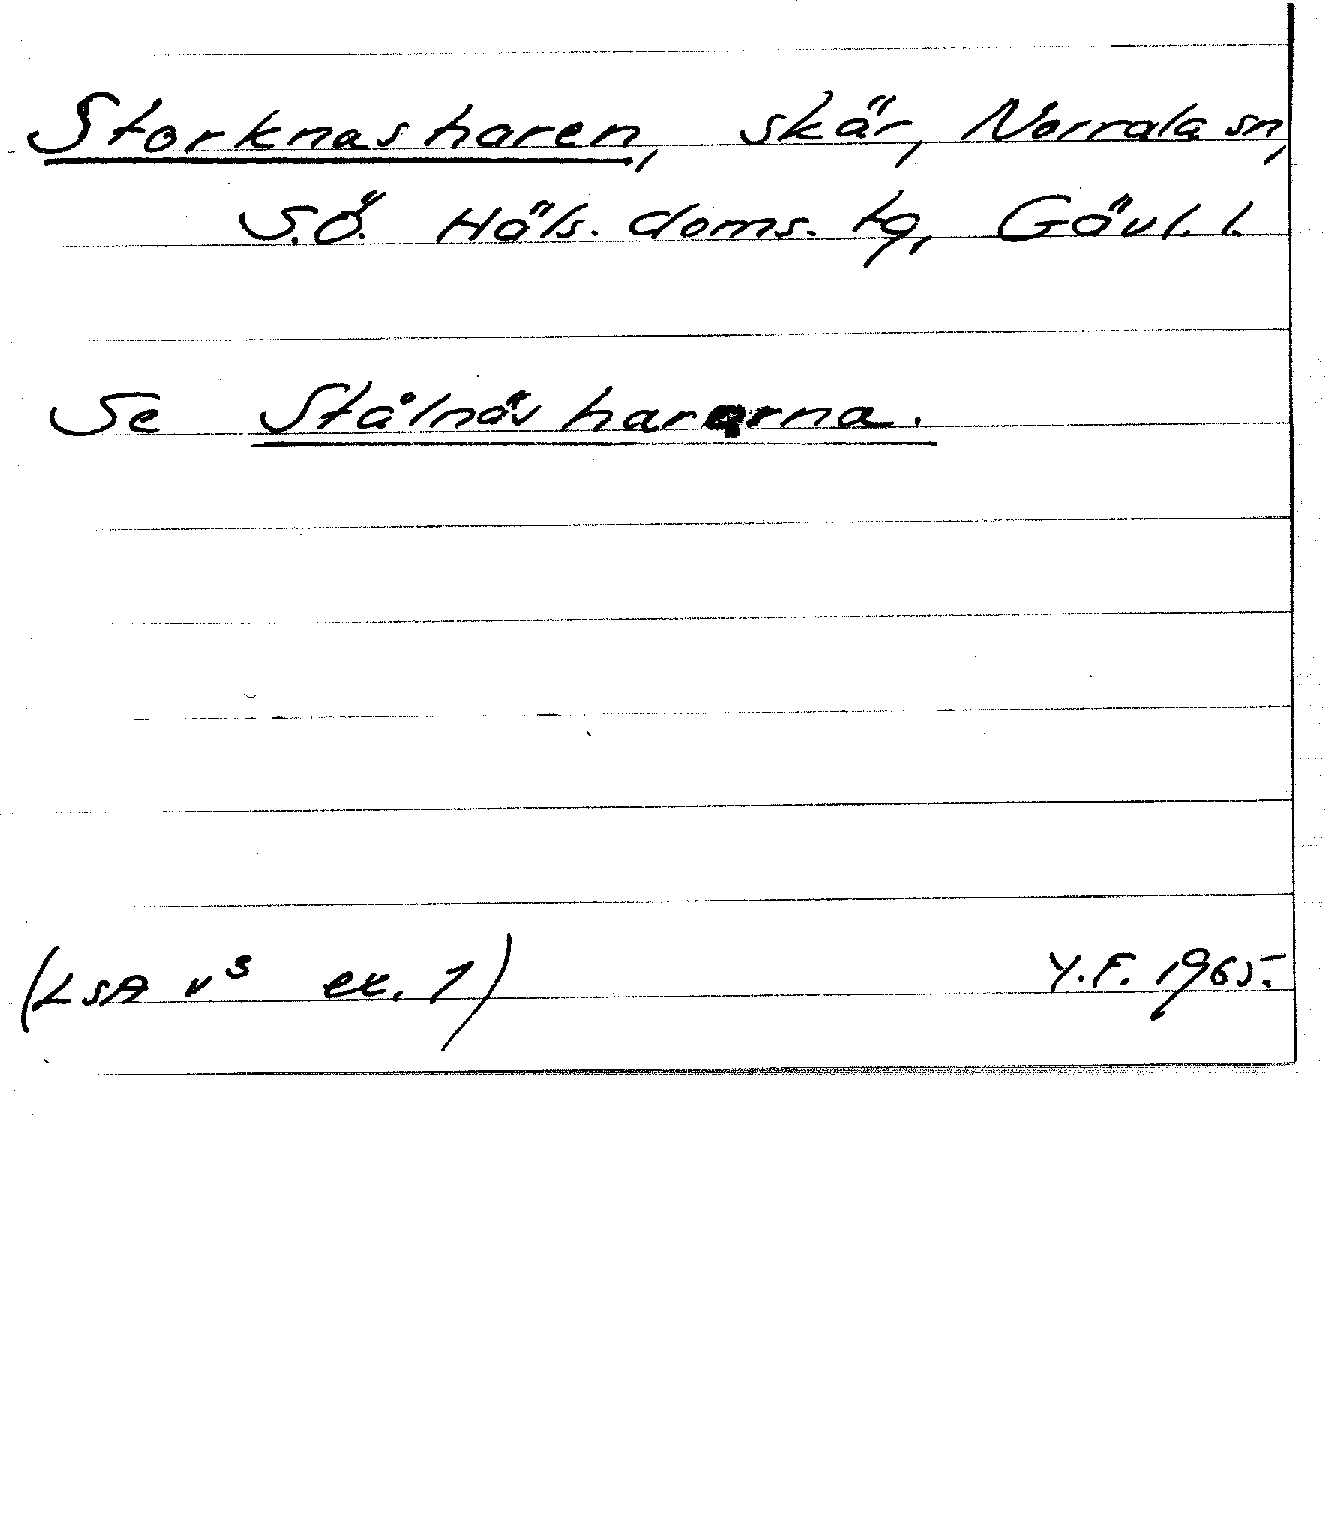 Storknasharen, skär, Norrala sn,
S.Ö. Häls. doms. tg, Gävl. l.
Se Stålnäshararna.
(LSA v³ ex. 1) Y.F. 1965.